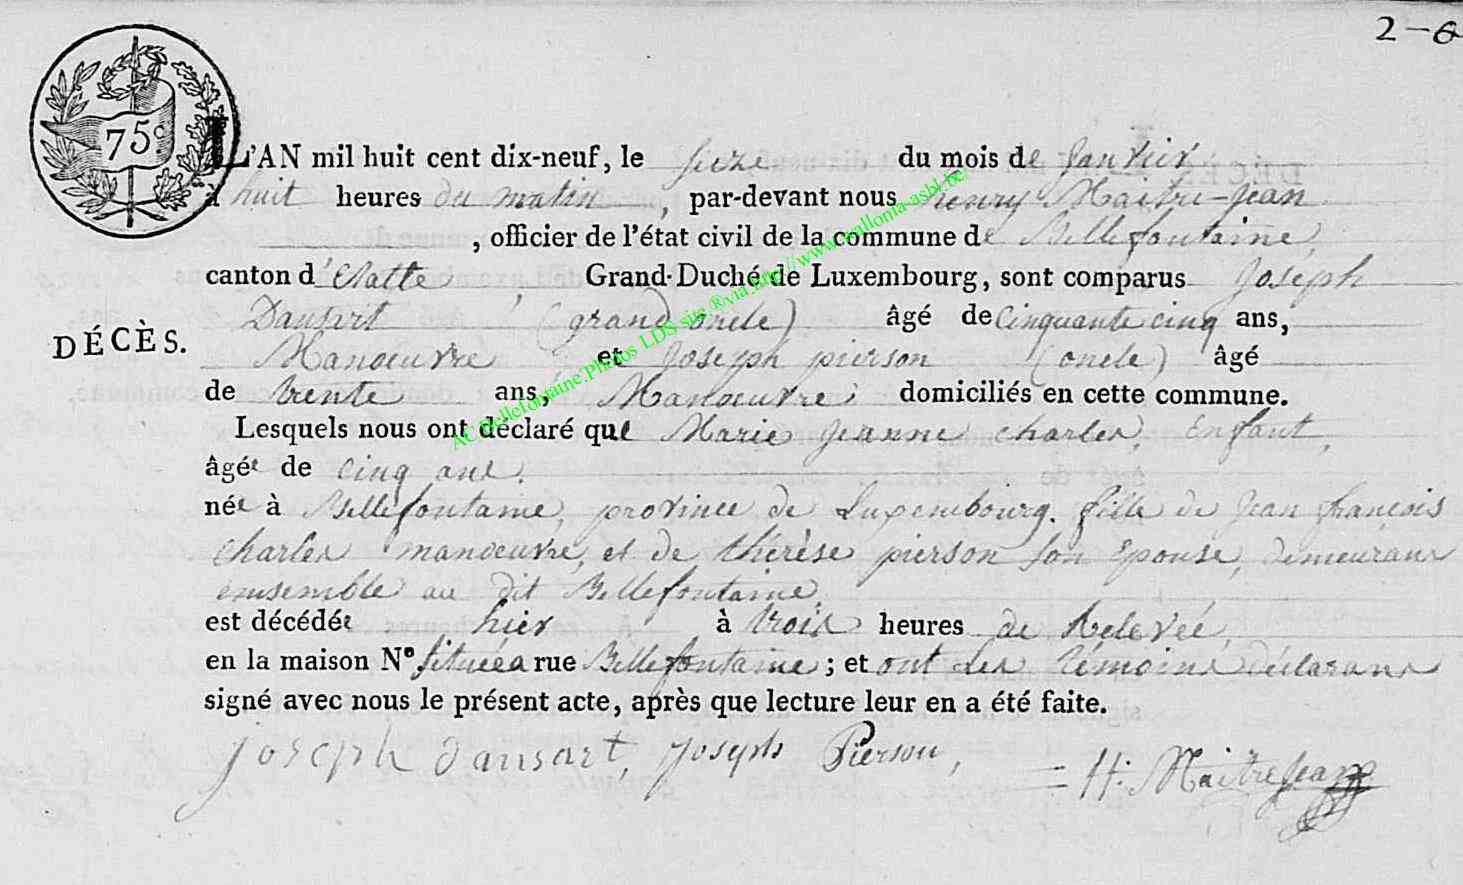 2-6
75c.
L'AN mil huit cent dix-neuf, le seize du mois de Janvier
à huit heures du matin, par-devant nous henry Maitre-jean
, officier de l'état civil de la commune de Bellefontaine
canton d'Etalle Grand-Duché de Luxembourg, sont comparus Joseph
Dansart (grand oncle) âgé de Cinquante cinq ans,
DÉCÈS.
Manoeuvre et Joseph pierson (oncle) âgé
de trente ans, Manoeuvre domiciliés en cette commune.
Lesquels nous ont déclaré que Marie jeanne charles, Enfant,
âgée de cinq ans.
née à Bellefontaine, province de Luxembourg. fille de jean françois
charles manoeuvre, et de thérèse pierson son Epouse, demeurans
ensemble au dit Bellefontaine,
est décédée hier à trois heures de Relevée,
en la maison N° située a rue Bellefontaine; et ont Les témoins déclarans
signé avec nous le présent acte, après que lecture leur en a été faite.
joseph dansart, joseph Pierson,
H: Maitrejean
AC Bellefontaine.Photos LDS sur ®via http://www.wallonia-asbl.be/